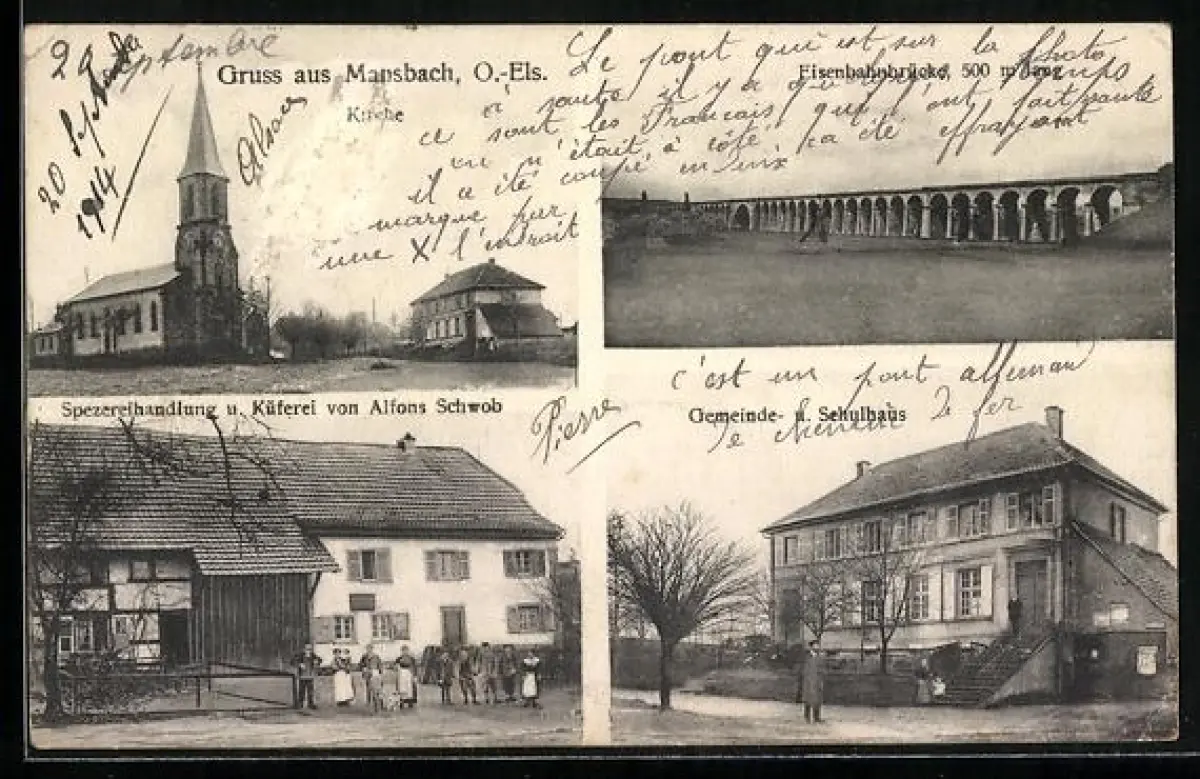 29 Septembre
20 Septembre
1914
Alsace
Gruss aus Mansbach, O.-Els.
Kirche
Eisenbahnbrücke, 500 m lang
Le pont qui est sur la photo
a sauté il y a temps
ce sont les Francais qui l'ont fait sauté
on n'était à côté, ça été effrayant
il a été coupé en deux
marque par
une X l'endroit
c'est un pont allemand
de chemin de fer
Spezereihandlung u. Küferei von Alfons Schwob
Pierre
Gemeinde- u. Schulhaus